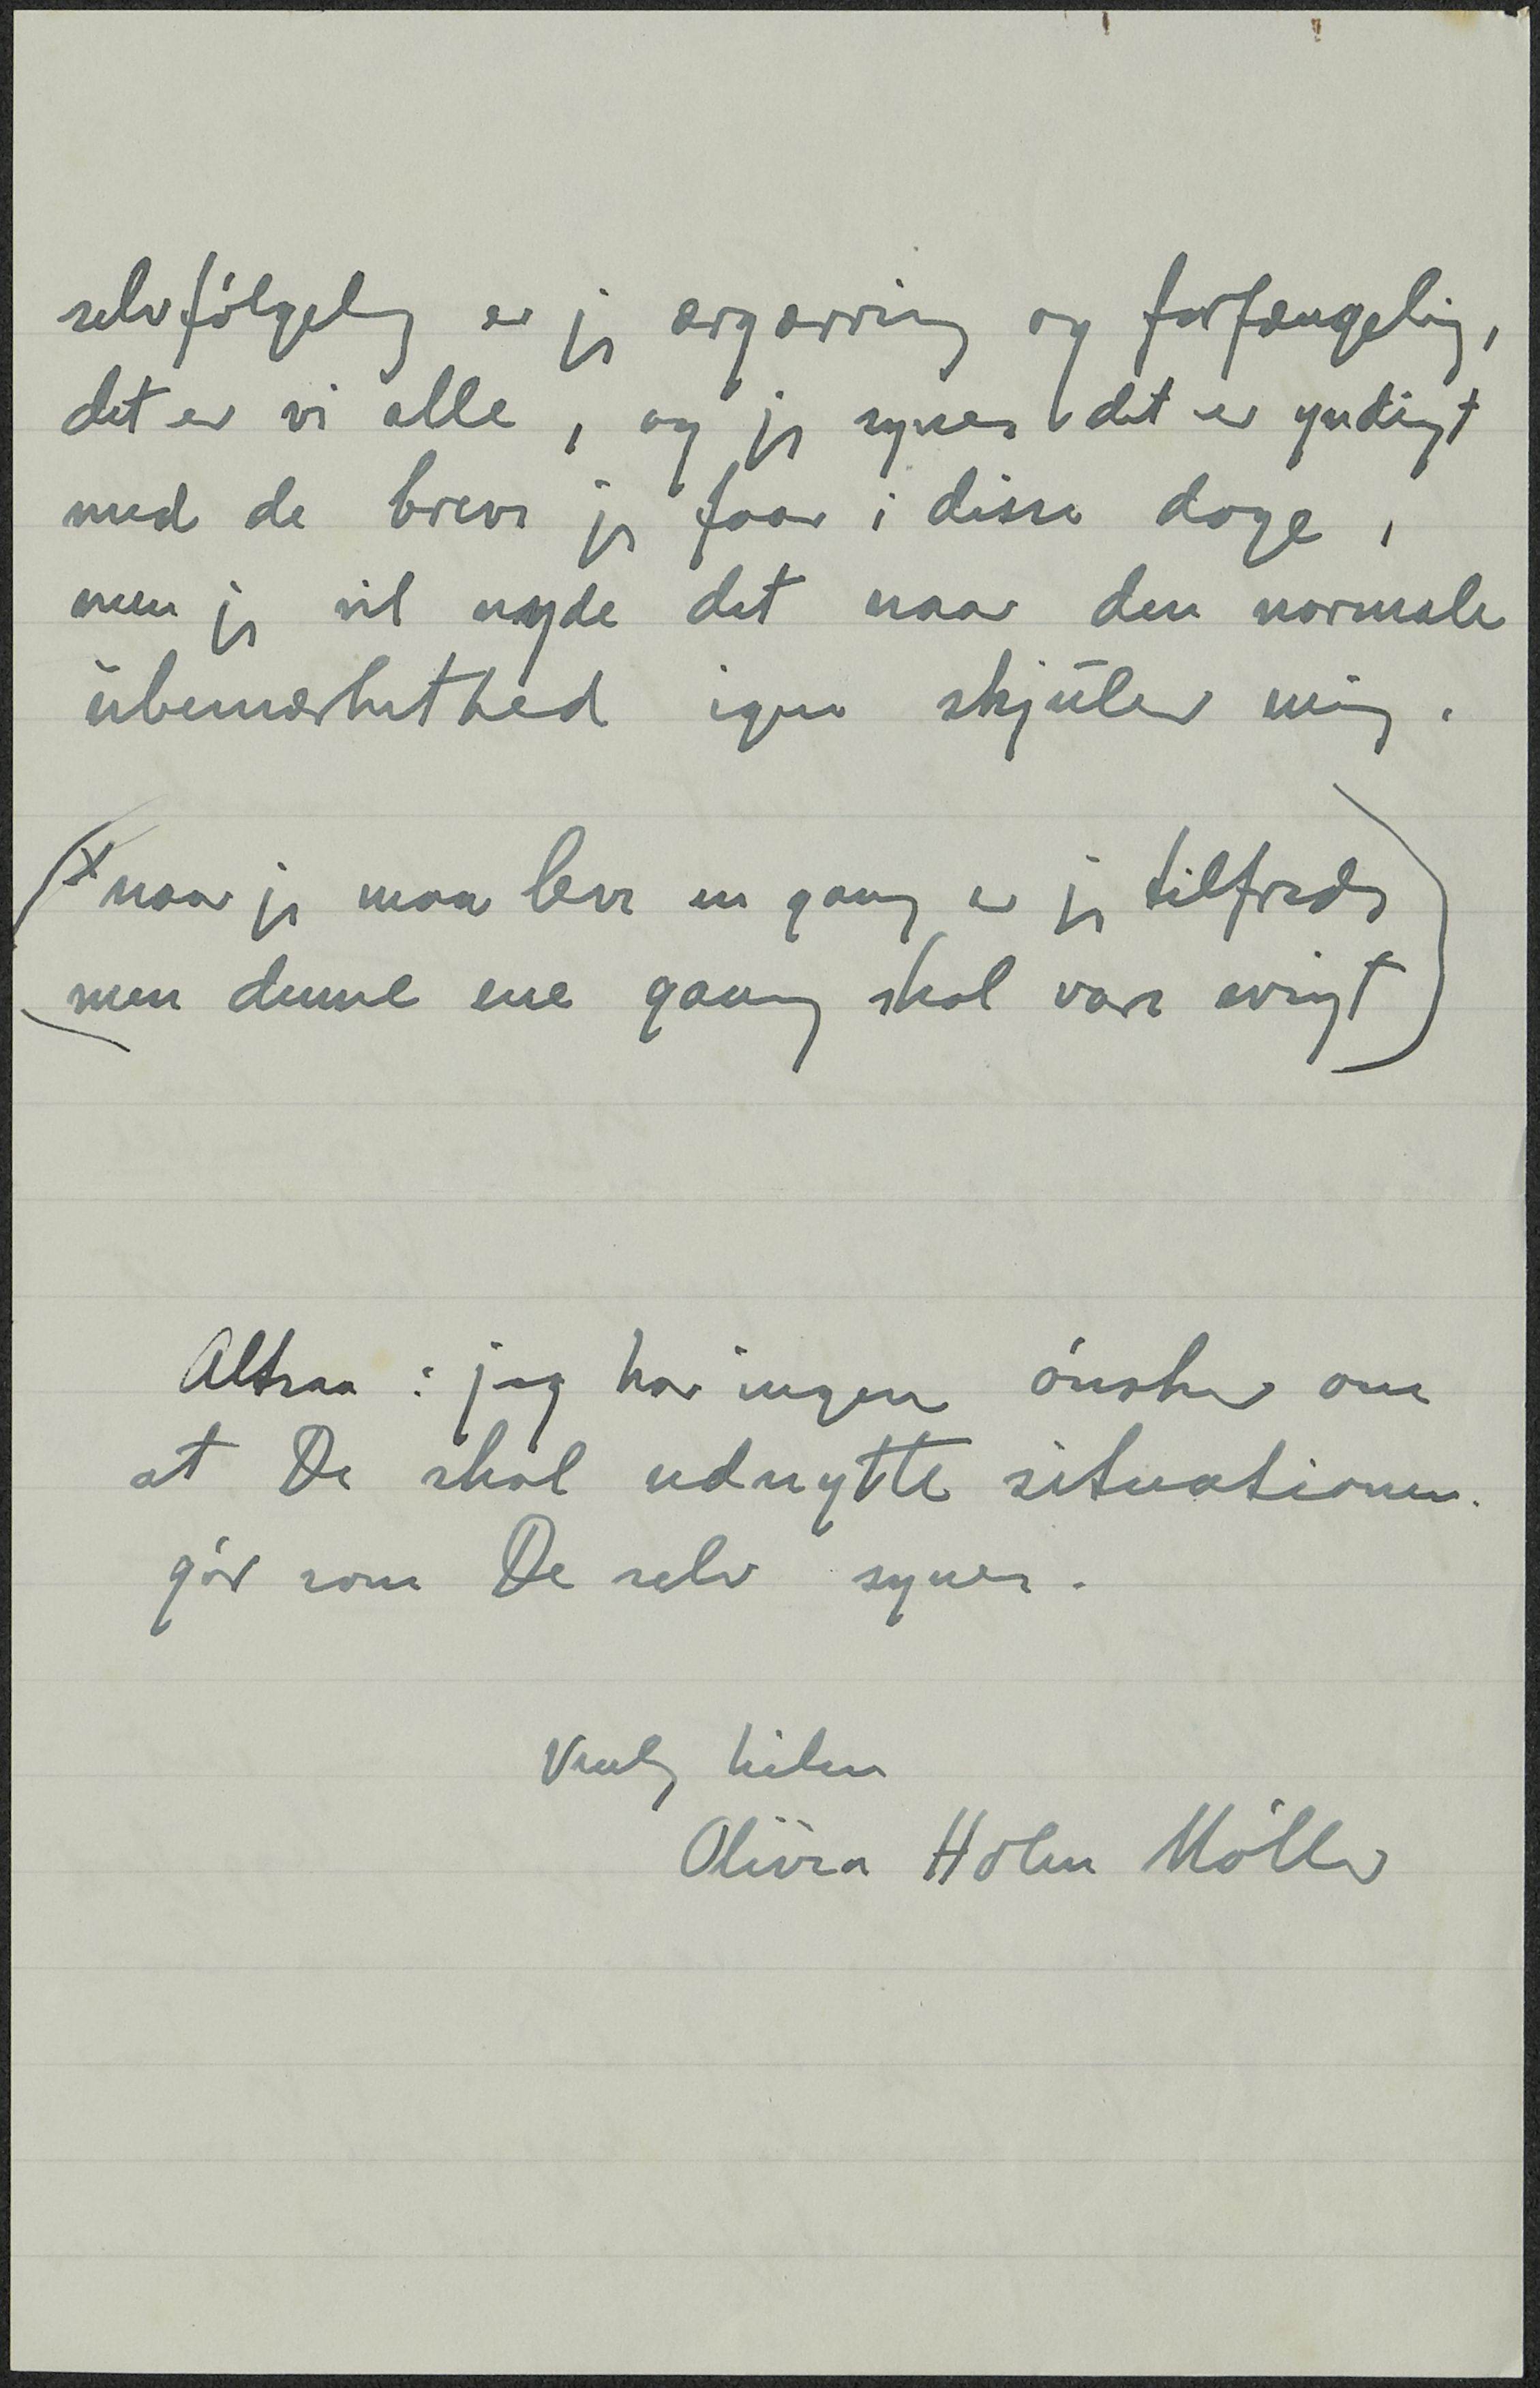 selvfølgelig er jeg ærgærrig og forfængelig,
det er vi alle, og jeg synes det er yndigt
med de breve jeg faar i disse dage,
men jeg vil nyde det naar den normale
übemærkethed igen skjüler mig.
(x naar jeg maa leve en gang er jeg tilfreds
men denne ene gang skal vare evigt)
Altsaa : jeg har ingen ønsker om
at De skal udnytte situationen.
gør som De selv synes.
Venlig hilsen
Olivia Holm Møller